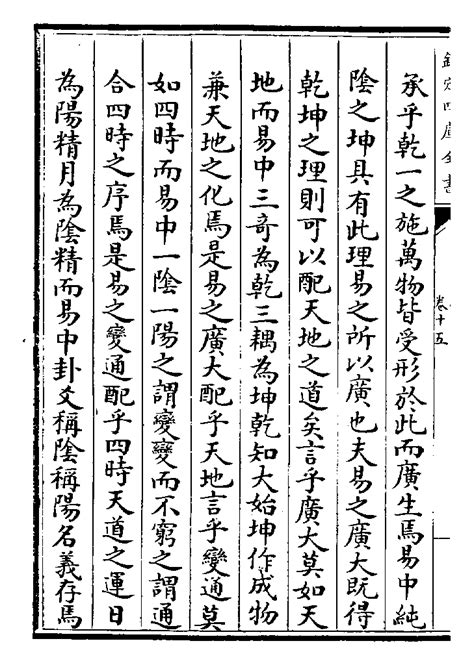 欽定四庫全書
卷十五
承乎乾一之施萬物皆受形於此而廣生焉易中純
陰之坤具有此理易之所以廣也夫易之廣大既得
乾坤之理則可以配天地之道矣言乎廣大莫如天
地而易中三奇為乾三耦為坤乾知大始坤作成物
兼天地之化焉是易之廣大配乎天地言乎變通莫
如四時而易中一陰一陽之謂變變而不窮之謂通
合四時之序焉是易之變通配乎四時天道之運日
為陽精月為陰精而易中卦爻稱陰稱陽名義存焉